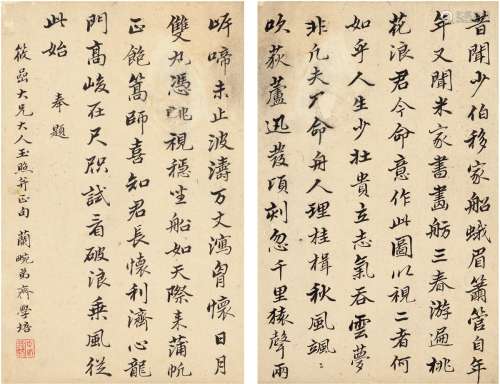 昔聞少伯移家船蛾眉簫管自年
年又聞米家書畫舫三春游遍桃
花浪君今命意作此圖以視二者何
如乎人生少壯貴立志氣吞雲夢
非凡夫不命舟人理桂楫秋風颯颯
吹荻蘆迅發頃刻忽千里猿聲兩
岸啼未止波濤万丈瀉胷懷日月
雙丸憑眺視穩坐船如天際來蒲帆
正飽篙師喜知君長懷利濟心龍
門高峻在尺咫試看破浪乘風從
此始 奉題
筱嵒大兄大人玉照并正句 蘭畹弟齊學培